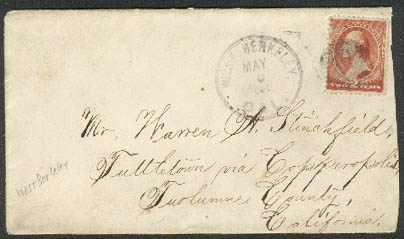 WEST BERKELEY
MAY
CAL.
TWO CENTS
Mr. Warren A. Stinchfield,
Tuttletown via Copperopolis,
Tuolumne County,
California.
West Berkeley